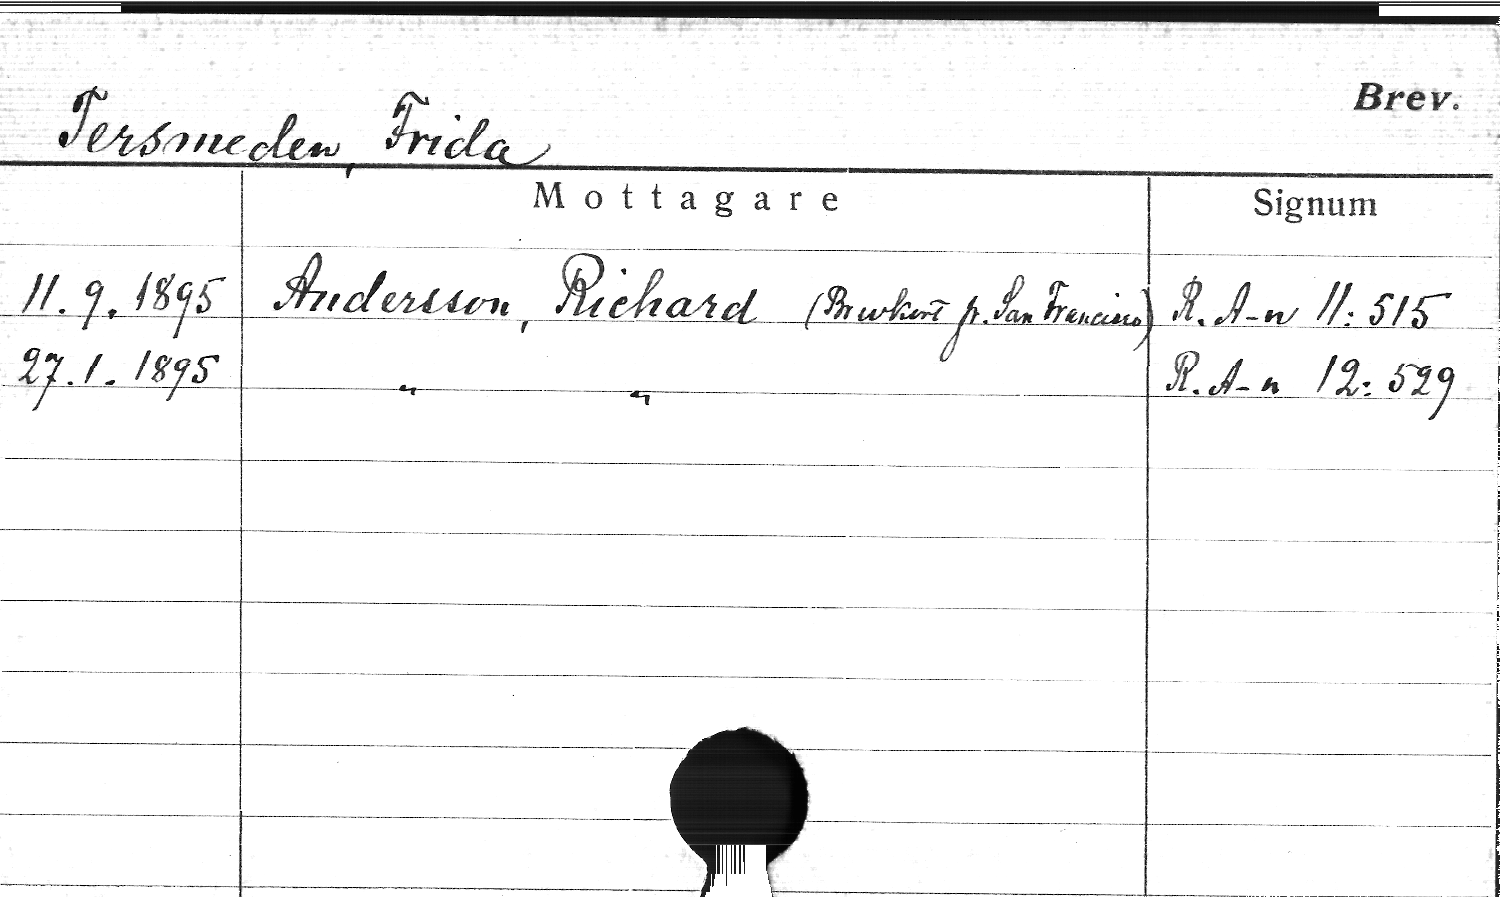 Brev.
Tersmeden, Frida
Mottagare Signum
11.9.1895 Andersson, Richard (Brevkort fr. San Francisco) R. A-n 11:515
27.1.1895 " " R. A-n 12:529